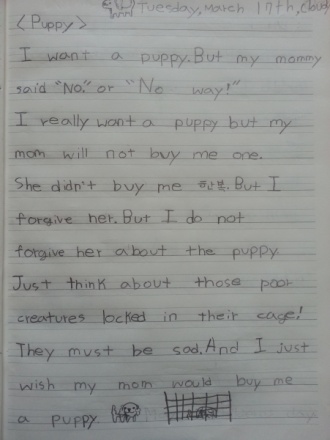 Tuesday, March 17th, Cloud
<Puppy>
I want a puppy. But my mommy
said "No." or "No way!"
I really want a puppy but my
mom will not buy me one.
She didn't buy me 한복. But I
forgive her. But I do not
forgive her about the puppy.
Just think about those poor
creatures locked in their cage!
They must be sad. And I just
wish my mom would buy me
a puppy.